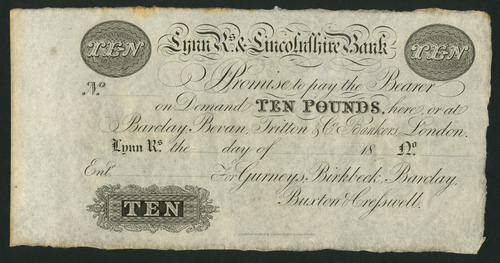 TEN Lynn Rs. & Lincolnshire Bank TEN
No I Promise to pay the Bearer
on Demand TEN POUNDS, here, or at
Barclay, Bevan, Tritton & Co. Bankers London.
Lynn Rs. the day of 18 No
Ent. For Gurneys, Birkbeck, Barclay,
Buxton & Cresswell.
TEN